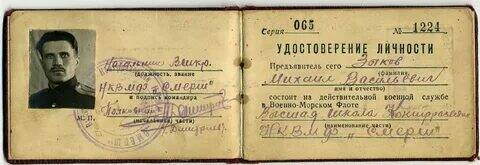 Начальник
(должность, звание
НКВМФ „Смерш"
и подпись командира
Полковник
(начальника) части)
М. П.
Серия 065 № 1224
УДОСТОВЕРЕНИЕ ЛИЧНОСТИ
Предъявитель сего Зыков
(фамилия
Михаил Васильевич
имя и отчество)
состоит на действительной военной службе
в Военно-Морском Флоте
Высшая Школа Контрразведки
(наименование части)
НКВМФ „Смерш"